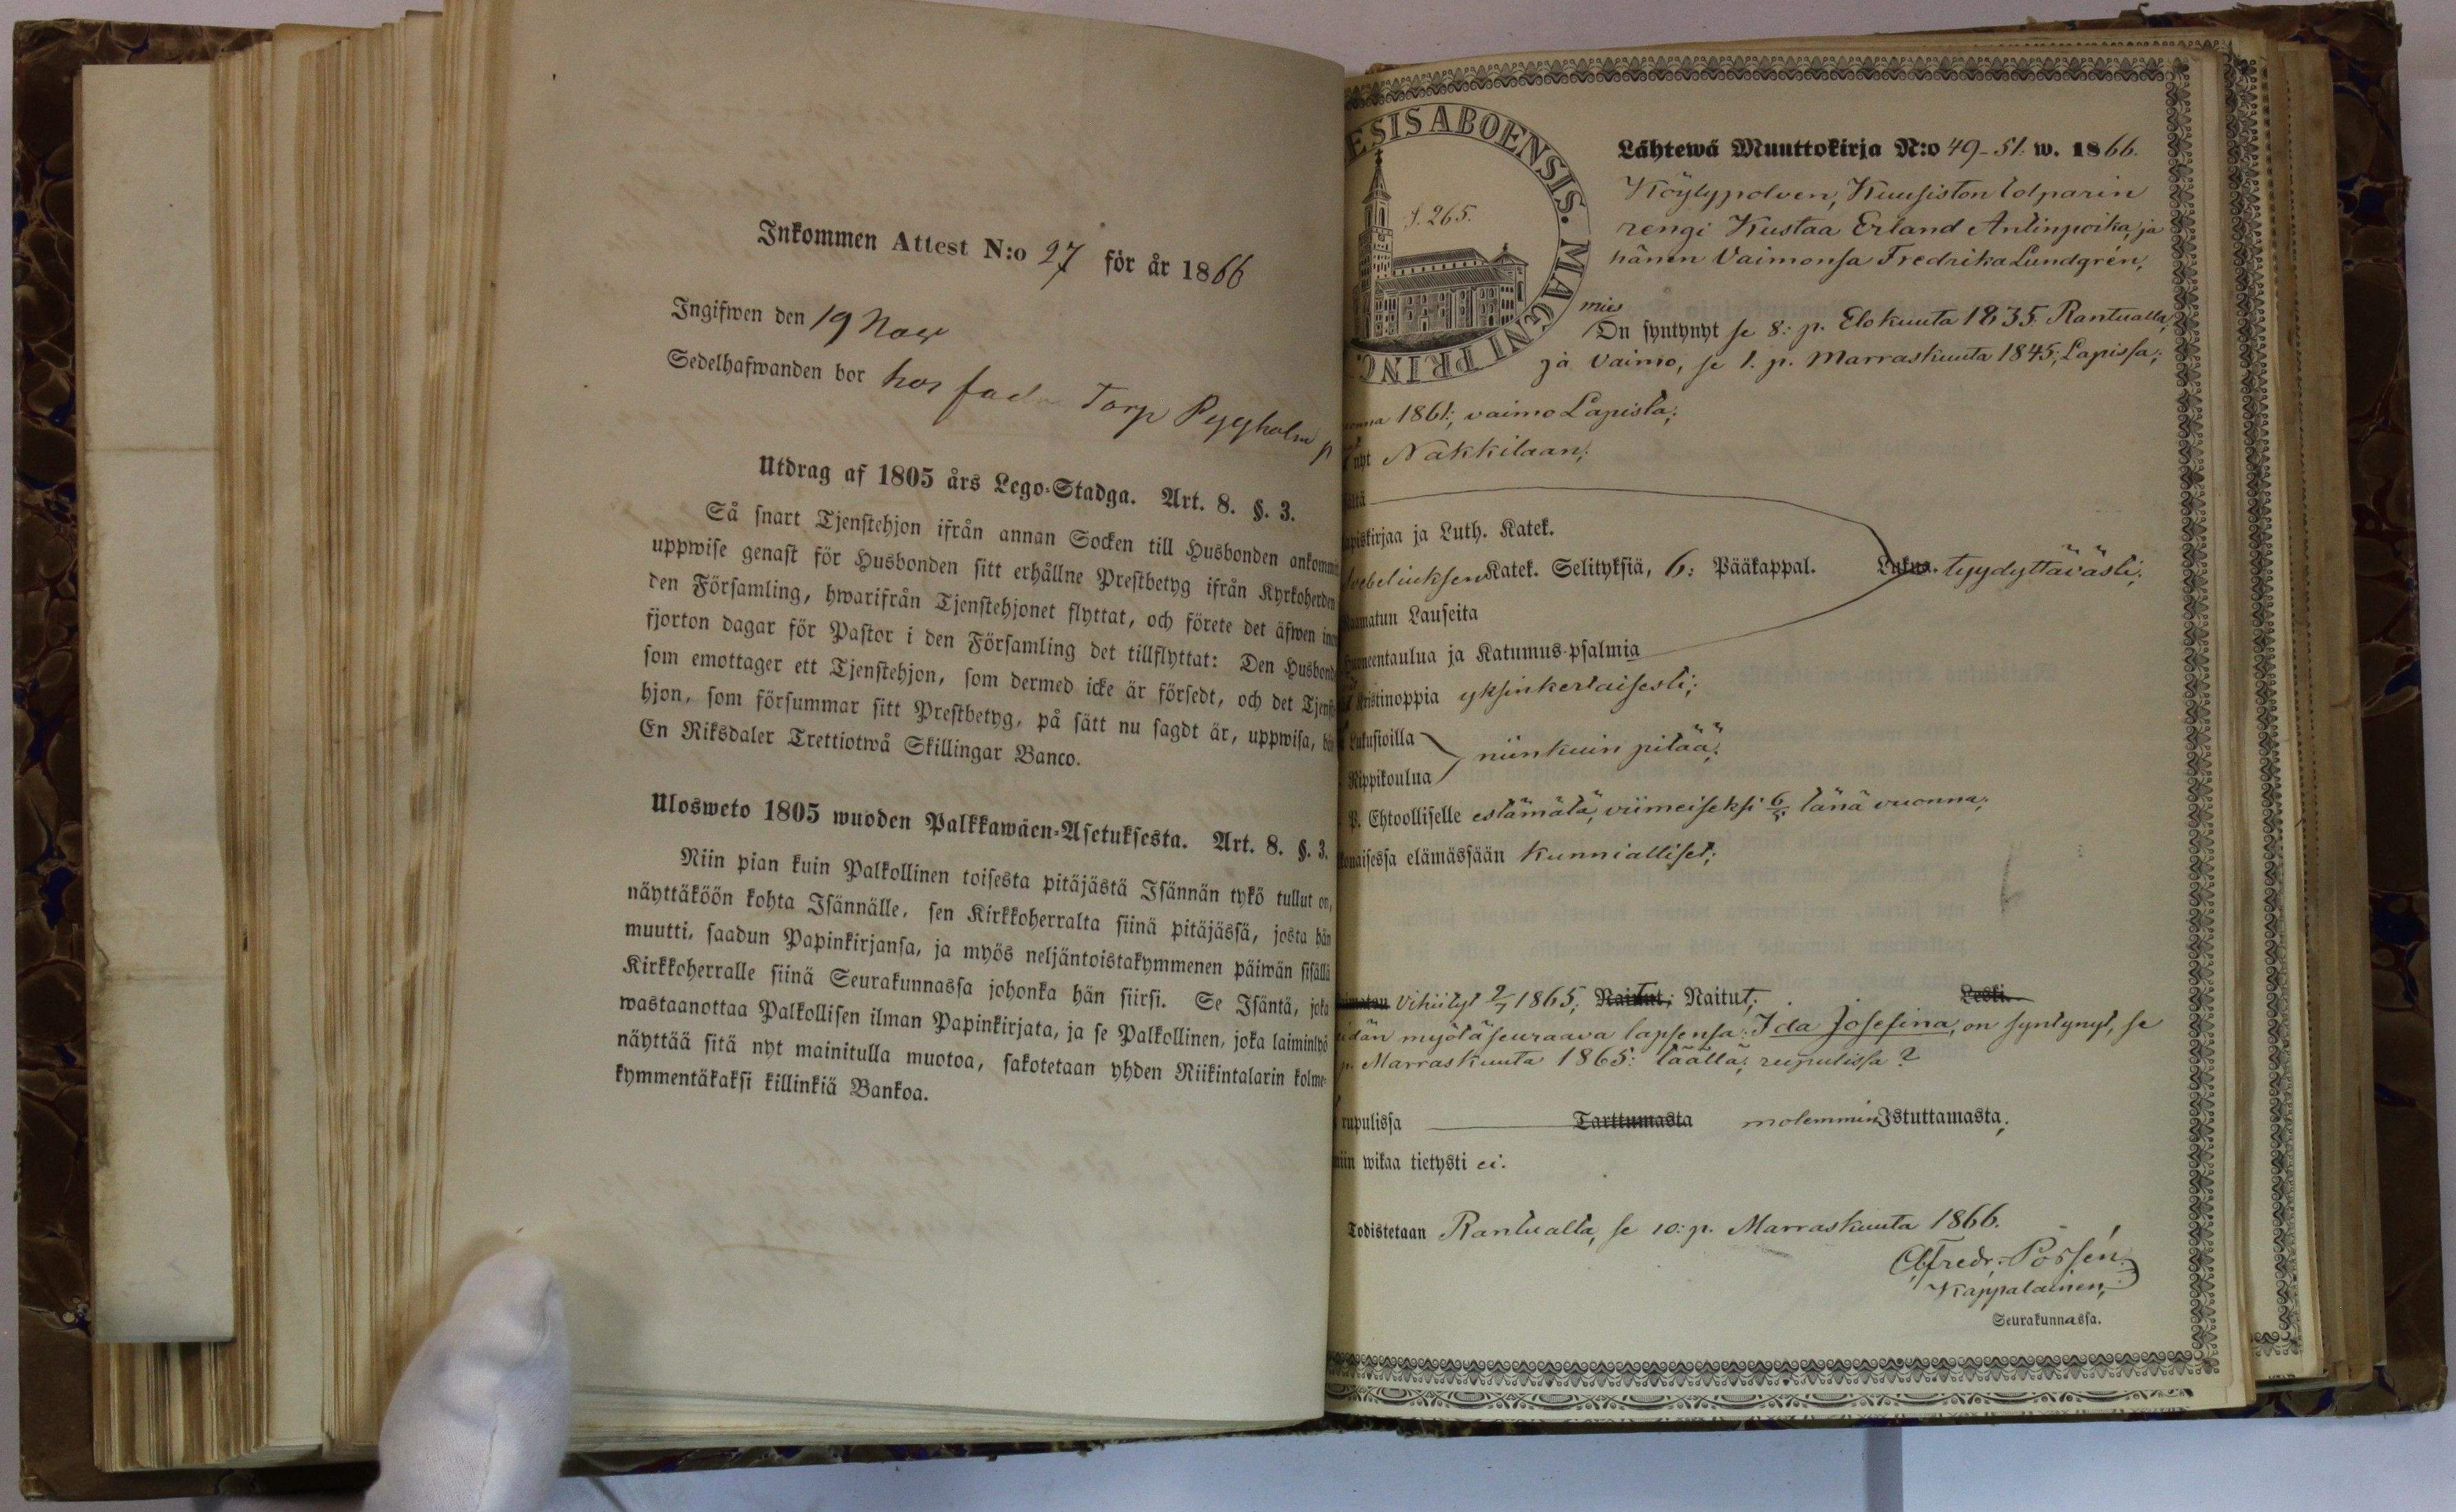 Inkommen Attest N:o 27 för år 1866
Ingifwen den 19 Nov
Sedelhafwanden bor hos fad Torp Pyyholm p
Utdrag af 1805 års Lego-Stadga. Art. 8. §. 3.
Så snart Tjenstehjon ifrån annan Socken till Husbonden ankommit
uppwise genast för Husbonden sitt erhållne Prestbetyg ifrån Kyrkoherden
den Församling, hwarifrån Tjenstehjonet flyttat, och förete det äfwen inom
fjorton dagar för Pastor i den Församling det tillflyttat: Den Husbonde
som emottager ett Tjenstehjon, som dermed icke är försedt, och det Tjenste-
hjon, som försummar sitt Prestbetyg, på sätt nu sagdt är, uppwisa,
En Riksdaler Trettiotwå Skillingar Banco.
Ulosweto 1805 wuoden Palkkawäen-Asetuksesta. Art. 8. §. 3.
Niin pian kuin Palkollinen toisesta pitäjästä Isännän tykö tullut on,
näyttäköön kohta Isännälle, sen Kirkkoherralta siinä pitäjässä, josta hän
muutti, saadun Papinkirjansa, ja myös neljäntoistakymmenen päiwän sisällä
Kirkkoherralle siinä Seurakunnassa johonka hän siirsi. Se Isäntä, joka
wastaanottaa Palkollisen ilman Papinkirjata, ja se Palkollinen, joka laiminlyö
näyttää sitä nyt mainitulla muotoa, sakotetaan yhden Riikintalarin kolme-
kymmentäkaksi killinkiä Bankoa.
ESIS ABOENSIS. MAGNI PRINC.
f. 265.
Lähtewä Muuttokirja N:o 49-51. w. 1866.
Köylypolven, Kuusiston tolparin
rengi Kustaa Erland Antinpoika, ja
hänen Vaimonsa Fredrika Lundgrén,
mies
On syntynyt se 8: p. Elokuuta 1835 Rantualla,
ja Vaimo, se 1. p. Marraskuuta 1845; Lapissa;
onna 1861; vaimo Lapista;
nyt Nakkilaan;
ältä
apiskirjaa ja Luth. Katek.
vebeliuksen Katek. Selityksiä, 6: Pääkappal. Lukua. tyydyttävästi;
matun Lauseita
neentaulua ja Katumus-psalmia
ristinoppia yksinkertaisesti;
Lukusioilla
niinkuin pitää;
Rippikoulua
P. Ehtoolliselle estämätä, viimeiseksi 6/5 tänä vuonna;
naisessa elämässään kunnialliset;
imaton Vihiityt 2/7 1865; Naitut; Naitut; Leski.
idän myötäseuraava lapsensa: Ida Josefina, on syntynyt, se
p. Marraskuuta 1865: täällä; rupulissa?
rupulissa Tarttumasta molemmin Istuttamasta;
niin wikaa tietysti ei.
Todistetaan Rantualla, se 10: p. Marraskuuta 1866.
Fredr. Possén
Kappalainen,
Seurakunnassa.